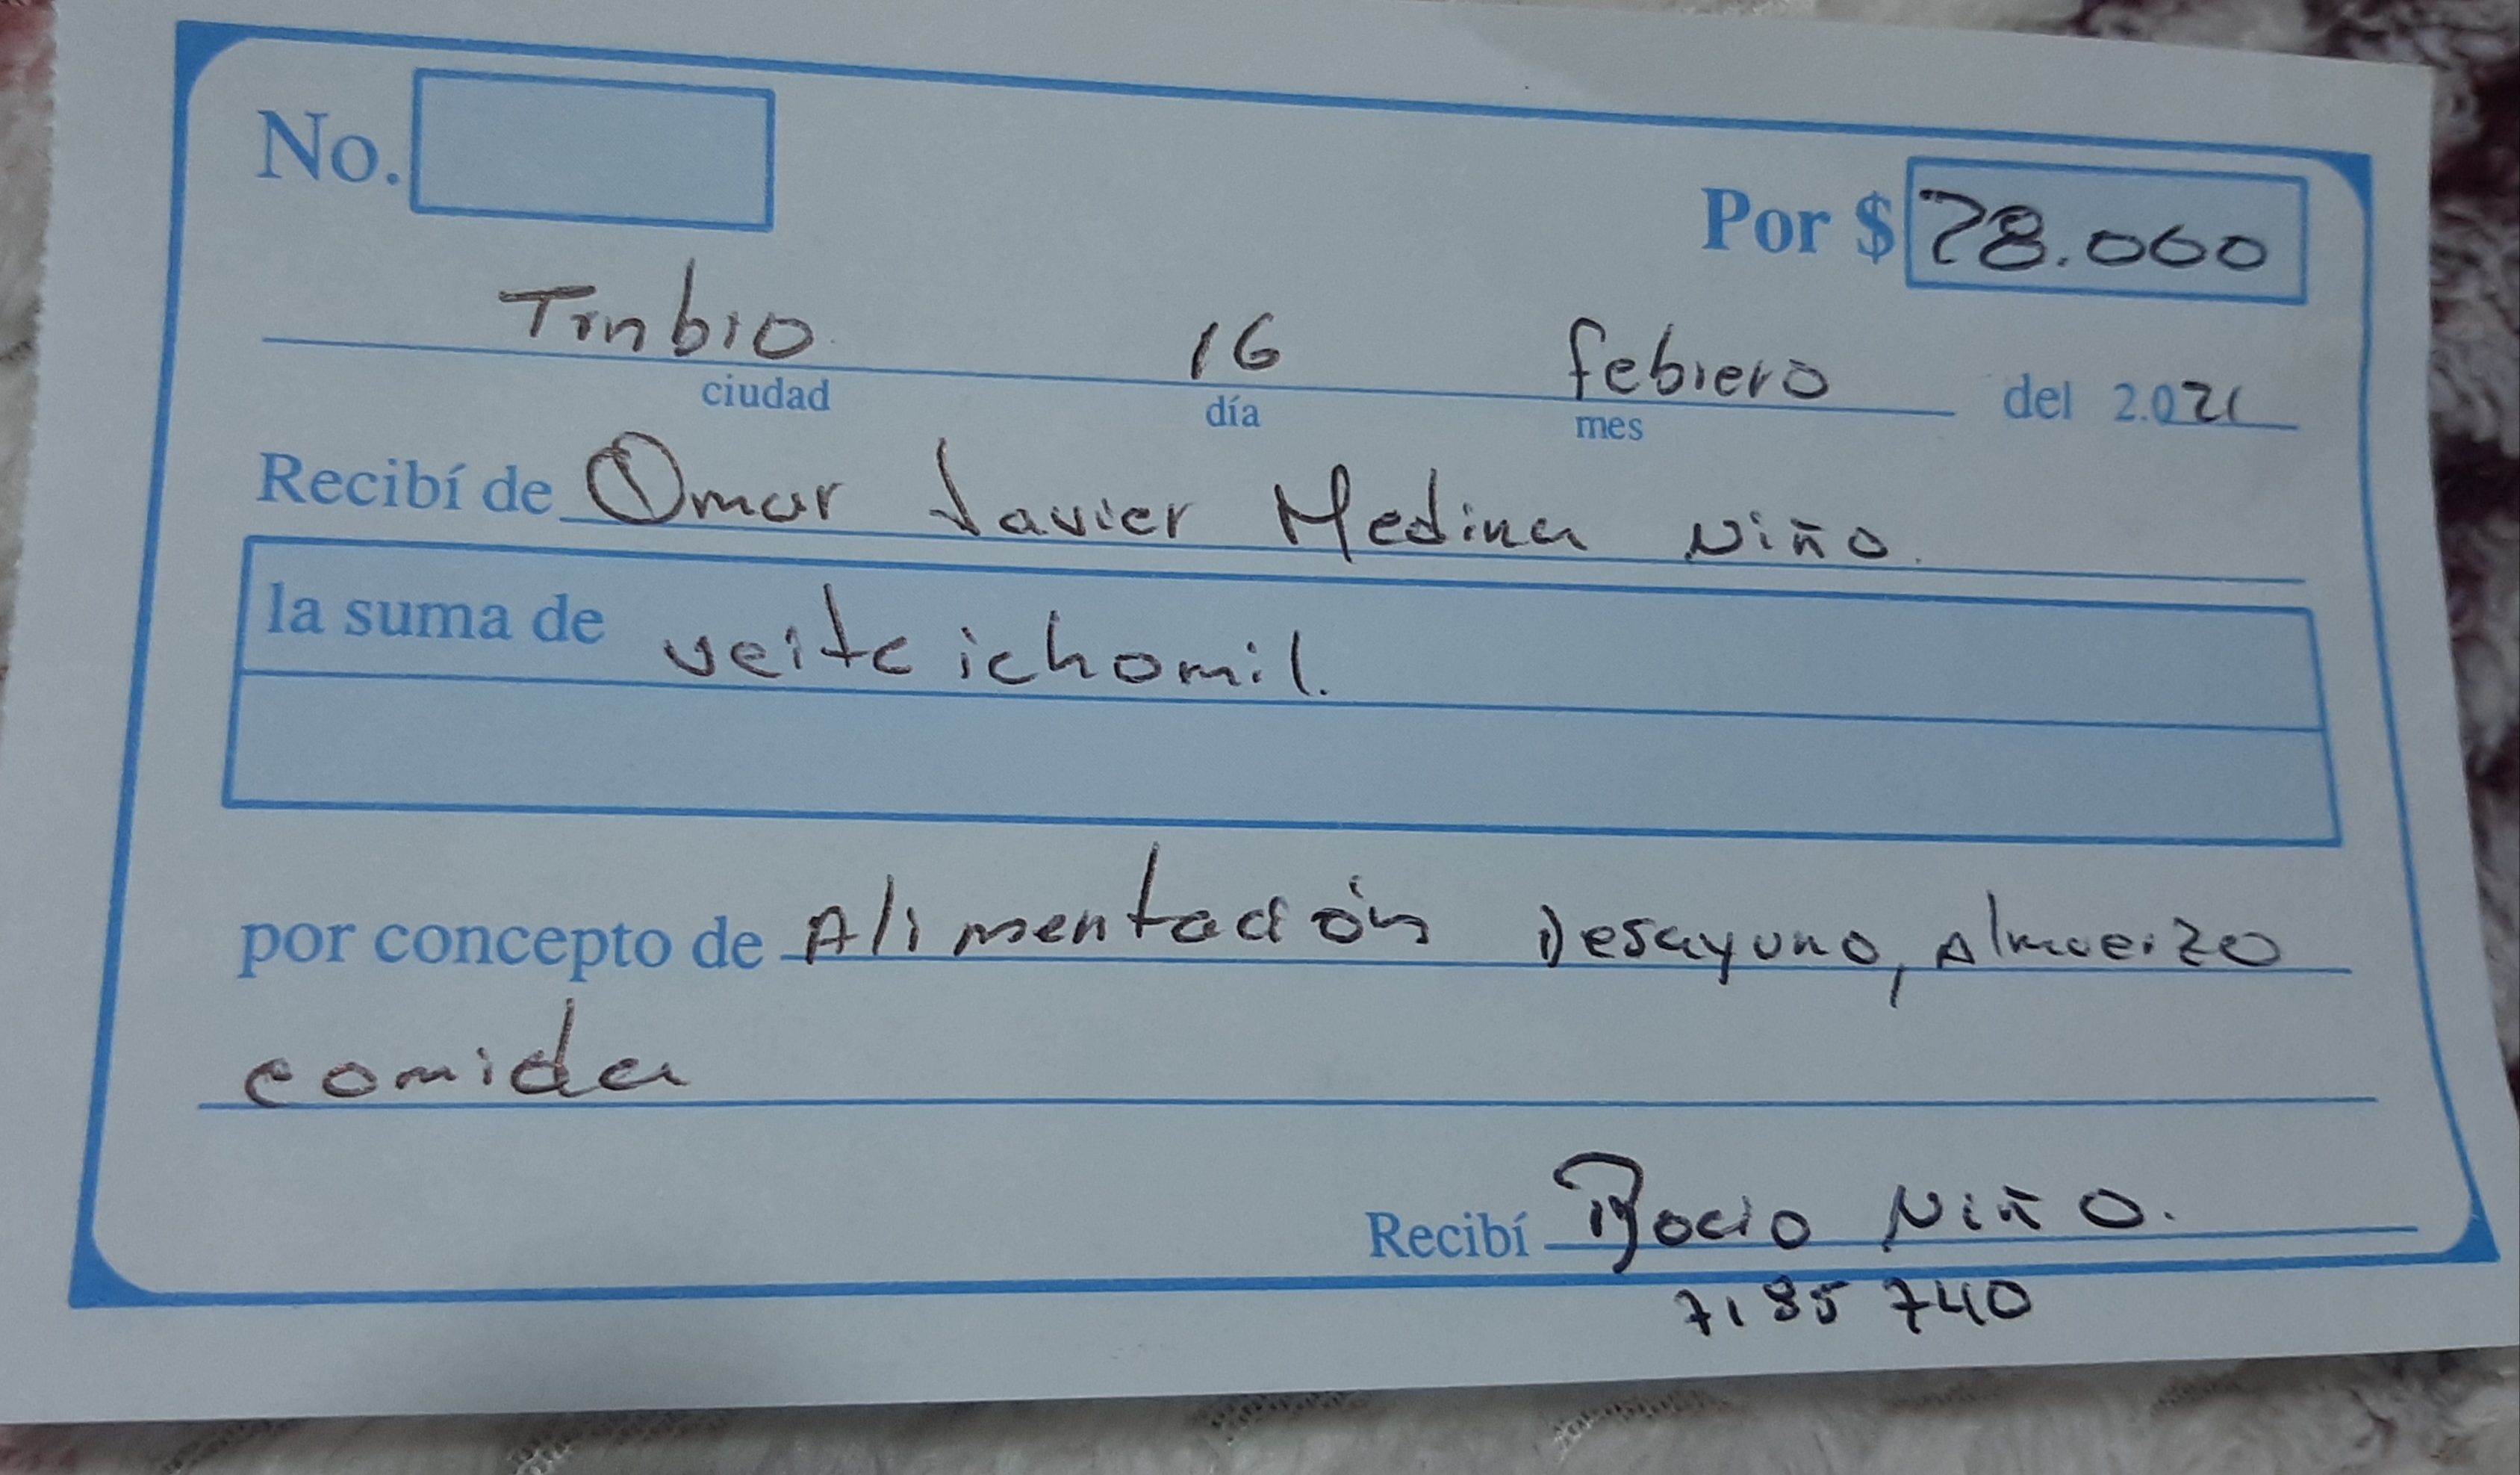 No.
Por $ 28.000
Timbio 16 febrero del 2.021
ciudad día mes
Recibí de Omar Javier Medina Niño.
la suma de veite ichomil.
por concepto de Alimentación Desayuno, Almuerzo
comida
Recibí Rocio Niño.
7185740